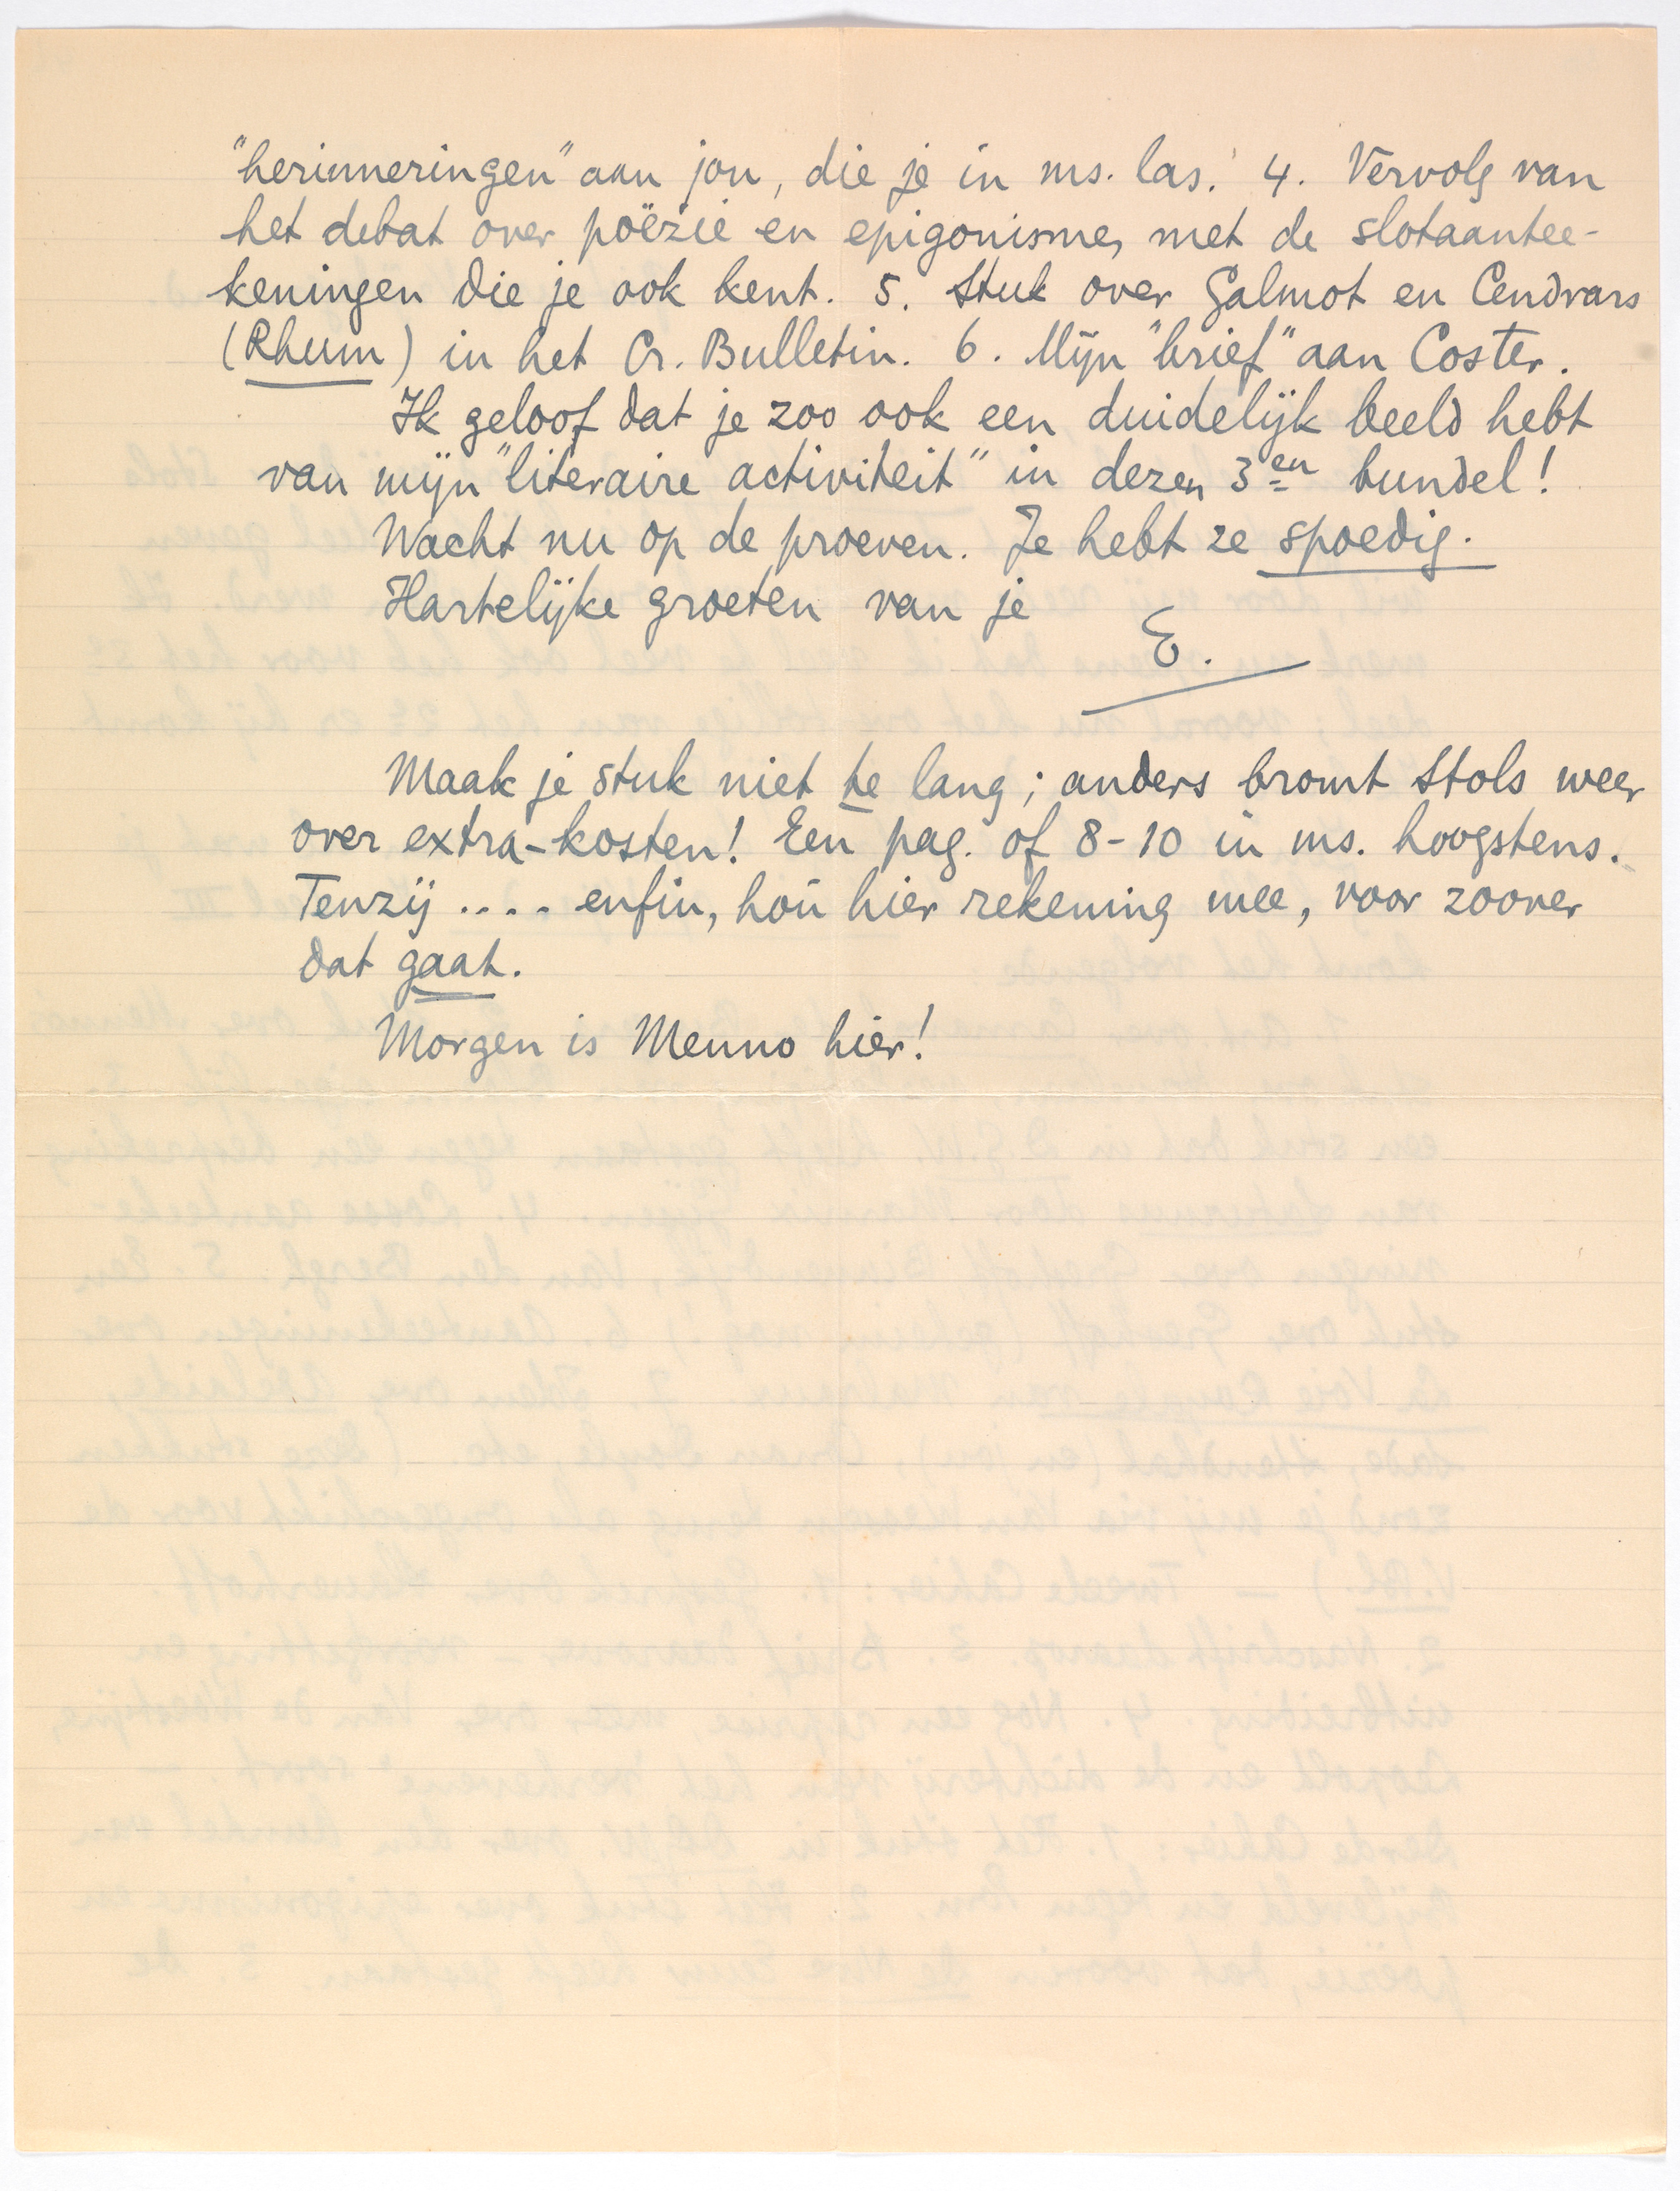 "herinneringen" aan jou, die je in ms. las. 4. Vervolg van
het debat over poëzie en epigonisme, met de slotaantee-
keningen die je ook kent. 5. Stuk over Galmot en Cendrars
(Rhum) in het Cr. Bulletin. 6. Mijn "brief" aan Coster.
Ik geloof dat je zoo ook een duidelijk beeld hebt
van mijn "literaire activiteit" in dezen 3en bundel!
Wacht nu op de proeven. Je hebt ze spoedig.
Hartelijke groeten van je
E.
Maak je stuk niet te lang; anders bromt Stols weer
over extra-kosten! Een pag. of 8-10 in ms. hoogstens.
Tenzij .... enfin, hou hier rekening mee, voor zoover
dat gaat.
Morgen is Menno hier!